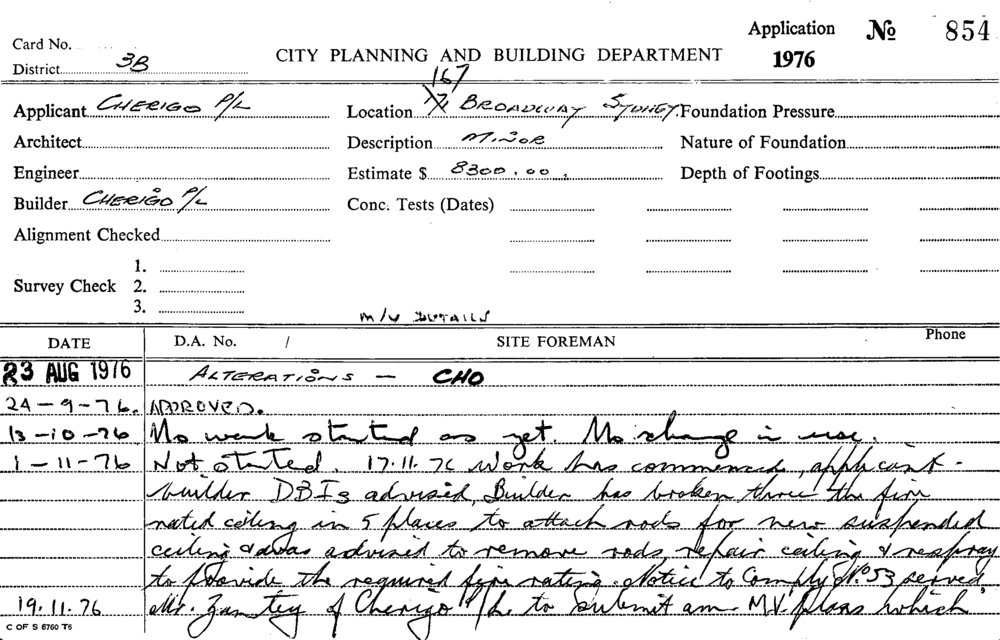 Application No 854
Card No.
District 3B
CITY PLANNING AND BUILDING DEPARTMENT
1976
167
Applicant CHERIGO P/L
Location 171 BROADWAY SYDNEY.
Foundation Pressure
Architect
Description MINOR
Nature of Foundation
Engineer
Estimate $ 8300.00.
Depth of Footings
Builder CHERIGO P/L
Conc. Tests (Dates)
Alignment Checked
Survey Check
1.
2.
3.
M/V DETAILS
DATE D.A. No. / SITE FOREMAN Phone
23 AUG 1976 ALTERATIONS — CHO
24-9-76. APPROVED.
13-10-76 No work started as yet. No change in use.
1-11-76 Not started. 17.11.76 Work has commenced, applicant-
builder DBI3 advised, Builder has broken three the fire
rated ceiling in 5 places to attach rods for new suspended
ceiling & was advised to remove rods, repair ceiling & respray
to provide the required fire rating. Notice to Comply No 53 served
19.11.76 Mr. of Cherigo P/L to submit am M.V. plans which
C OF S 6760 T6